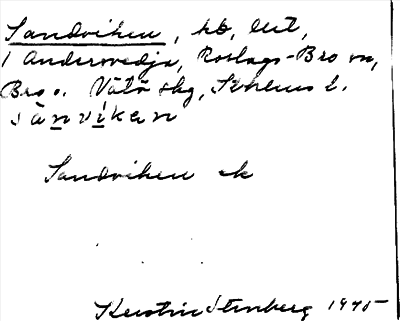 Sandviken, hb, lut,
i Andersvedja, Roslags-Bro sn,
Bro o. Vätö skg, Sthlms l.
sànvíkan
Sandviken ek
Kerstin Stenberg 1945